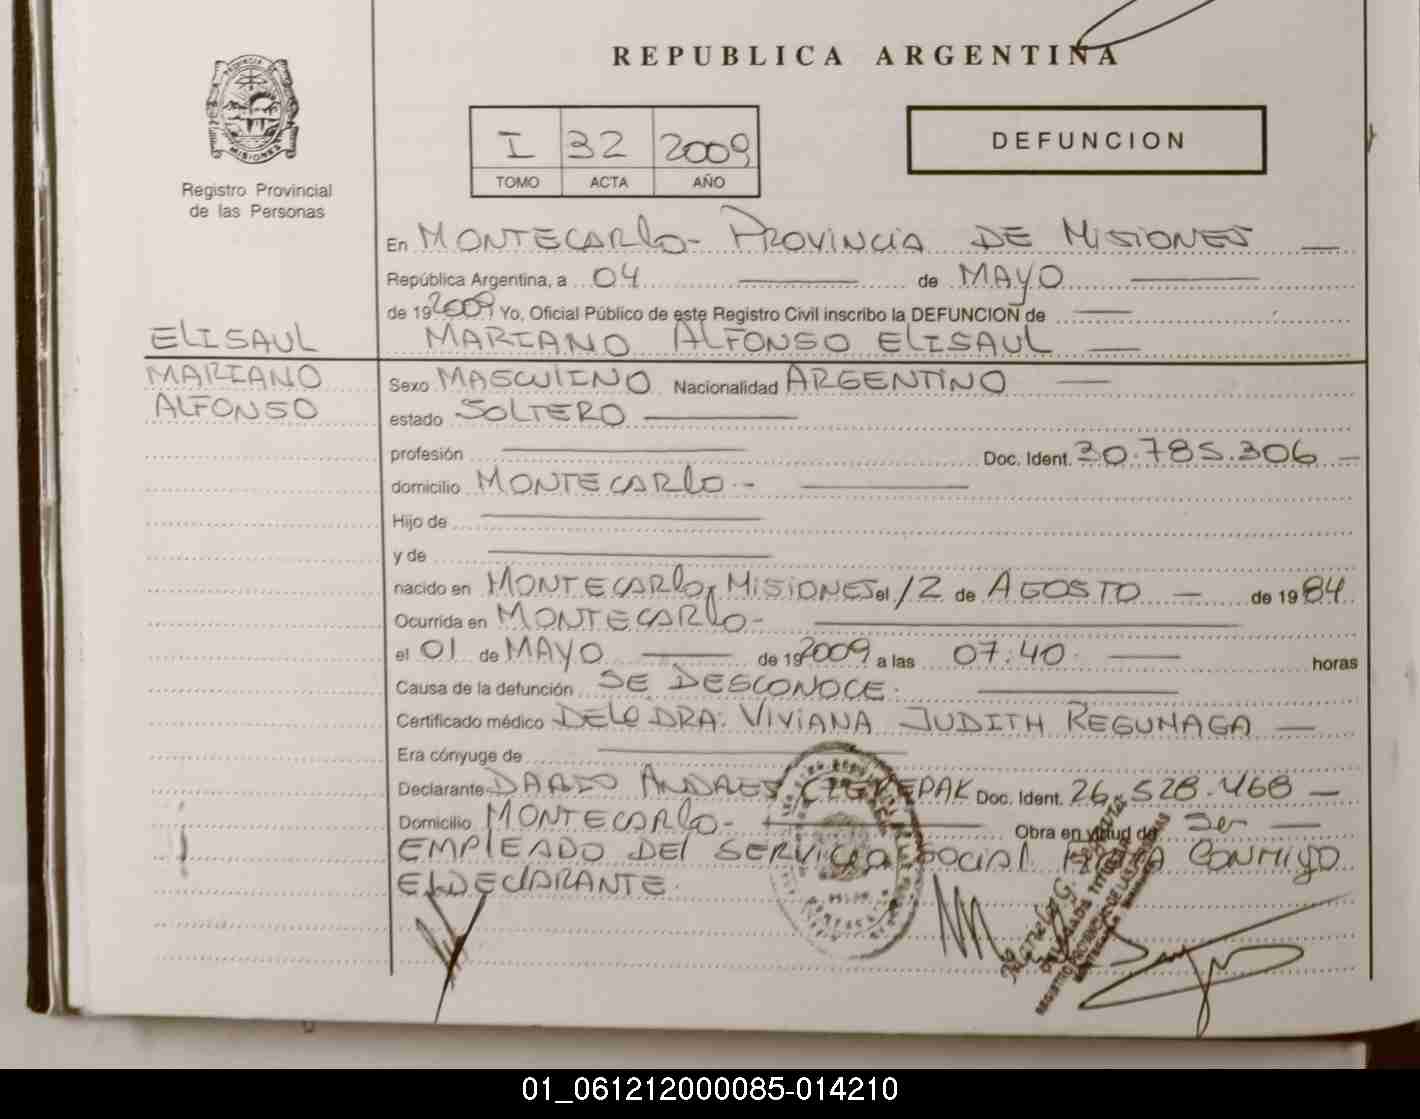 REPUBLICA ARGENTINA
PROVINCIA DE
MISIONES
Registro Provincial
de las Personas
I 32 2009
TOMO ACTA AÑO
DEFUNCION
En MONTECARLO - PROVINCIA DE MISIONES
República Argentina, a 04 de MAYO
de 19 2009 Yo, Oficial Público de este Registro Civil inscribo la DEFUNCION de
ELISAUL
MARIANO ALFONSO ELISAUL
MARIANO
ALFONSO
Sexo MASCULINO Nacionalidad ARGENTINO
estado SOLTERO
profesión Doc. Ident. 30.785.306
domicilio MONTECARLO.-
Hijo de
y de
nacido en MONTECARLO, MISIONES el 12 de AGOSTO de 19 84
Ocurrida en MONTECARLO-
el 01 de MAYO de 19 2009 a las 07.40 horas
Causa de la defunción SE DESCONOCE.
Certificado médico DE LA DRA. VIVIANA JUDITH REGUNAGA
Era cónyuge de
Declarante DARIO ANDRES Doc. Ident. 26.528.468
Domicilio MONTECARLO- Obra en virtud de Ser
EMPLEADO DEL SERVICIO SOCIAL FIRMA CONMIGO
EL DECLARANTE.
DELEGADA TITULAR
REGISTRO PROVINCIAL DE LAS PERSONAS
01_061212000085-014210